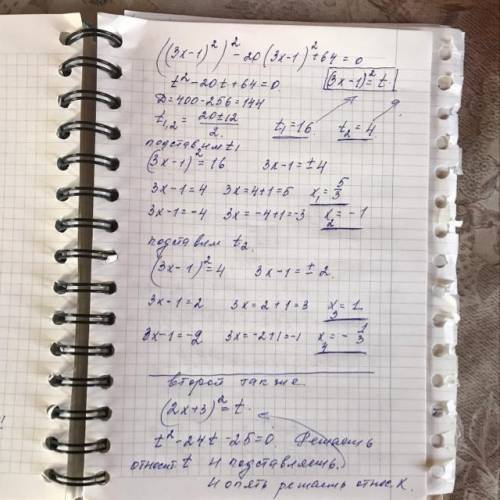 ((3x-1)²)² - 20(3x-1)² + 64 = 0
t² - 20t + 64 = 0 (3x-1)² = t
D = 400 - 256 = 144
t₁,₂ = (20±12)/2. t₁ = 16 t₂ = 4
подставим t₁
(3x-1)² = 16 3x-1 = ±4
3x-1 = 4 3x = 4+1 = 5 x₁ = 5/3
3x-1 = -4 3x = -4+1 = -3 x₂ = -1
подставим t₂.
(3x-1)² = 4 3x-1 = ±2.
3x-1 = 2 3x = 2+1 = 3 x₃ = 1
3x-1 = -2 3x = -2+1 = -1 x₄ = -1/3
второй так же
(2x+3)² = t.
t² - 24t - 25 = 0. Решаешь
относит t и подставляешь.
и опять решаешь относ. x.